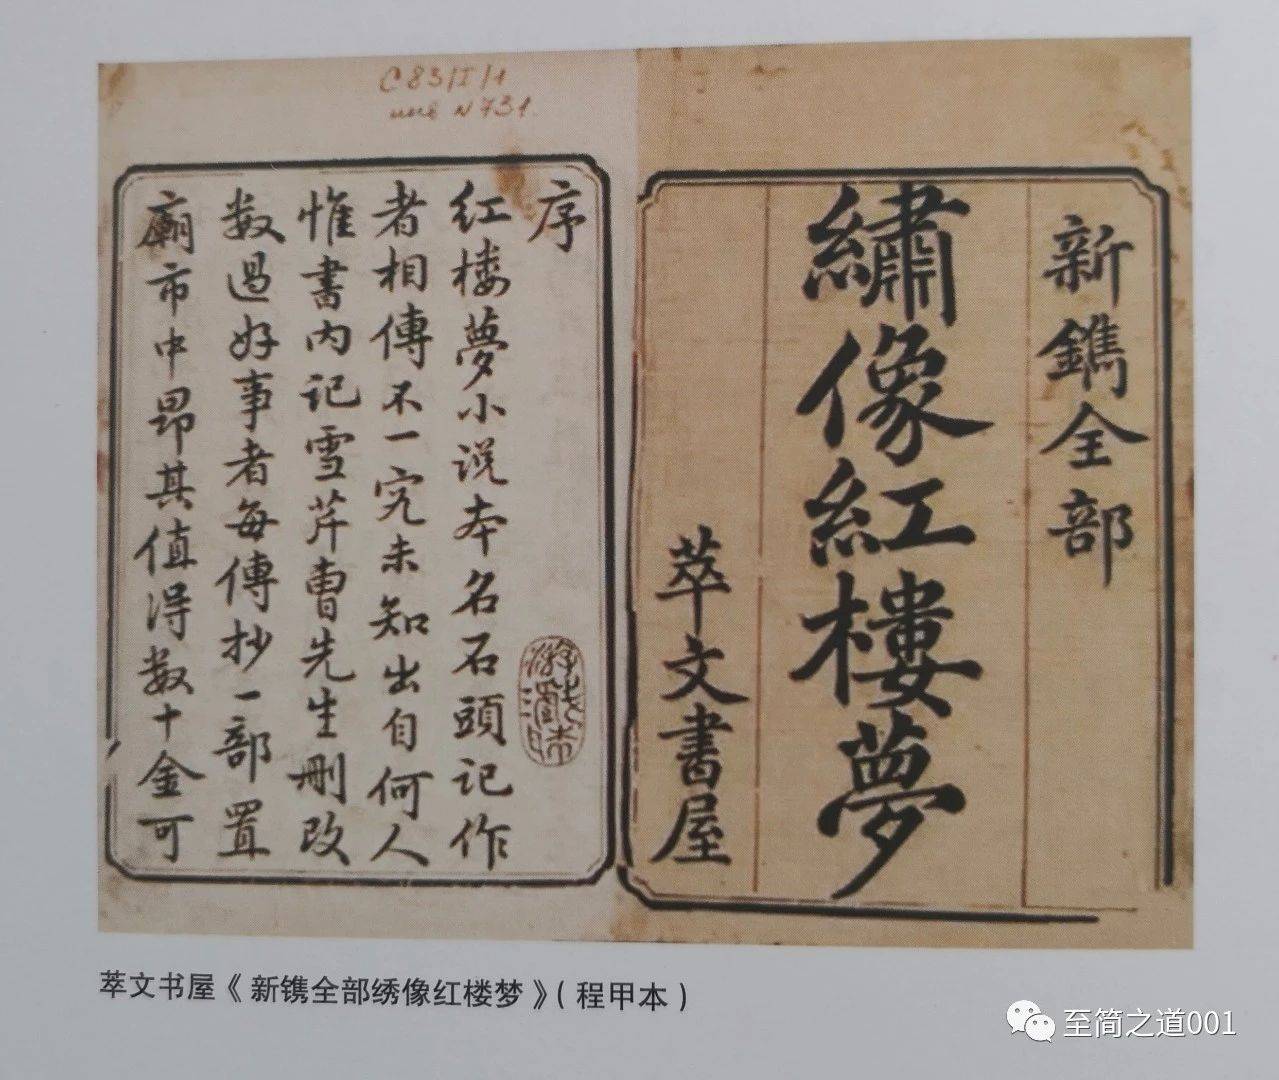 C83/I/1
инв N 731.
新鐫全部
繡像紅樓夢
萃文書屋
序
红楼夢小说本名石頭记作
者相傳不一究未知出自何人
惟書内记雪芹曹先生删改
数過好事者每傳抄一部置
廟市中昂其值得数十金可
萃文书屋《新镌全部绣像红楼梦》（程甲本）
至简之道001